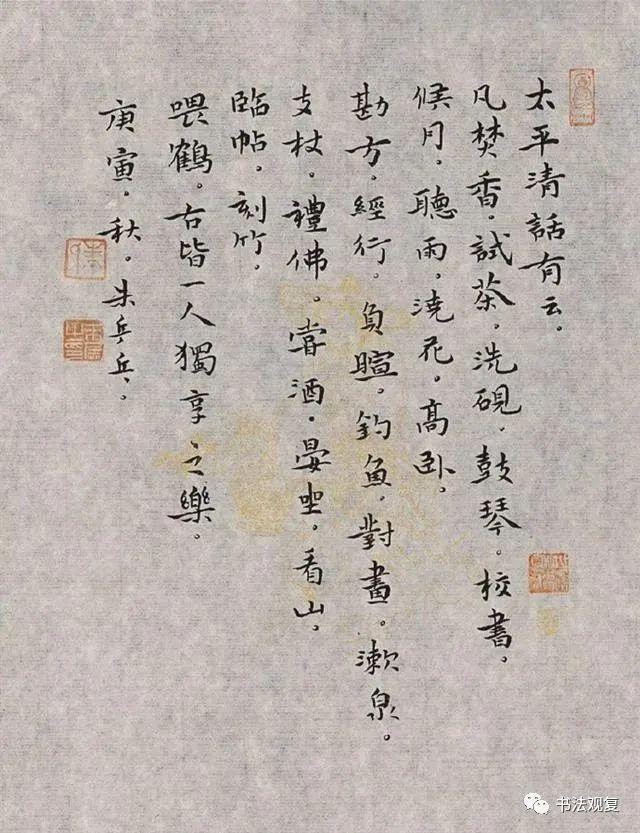 太平清話有云。
凡焚香。試茶。洗硯。鼓琴。校書。
候月。聽雨。澆花。高卧。
勘方。經行。負暄。釣魚。對畫。漱泉。
支杖。禮佛。嘗酒。晏坐。看山。
臨帖。刻竹。
喂鶴。右皆一人獨享之樂。
庚寅。秋。朱
书法观复